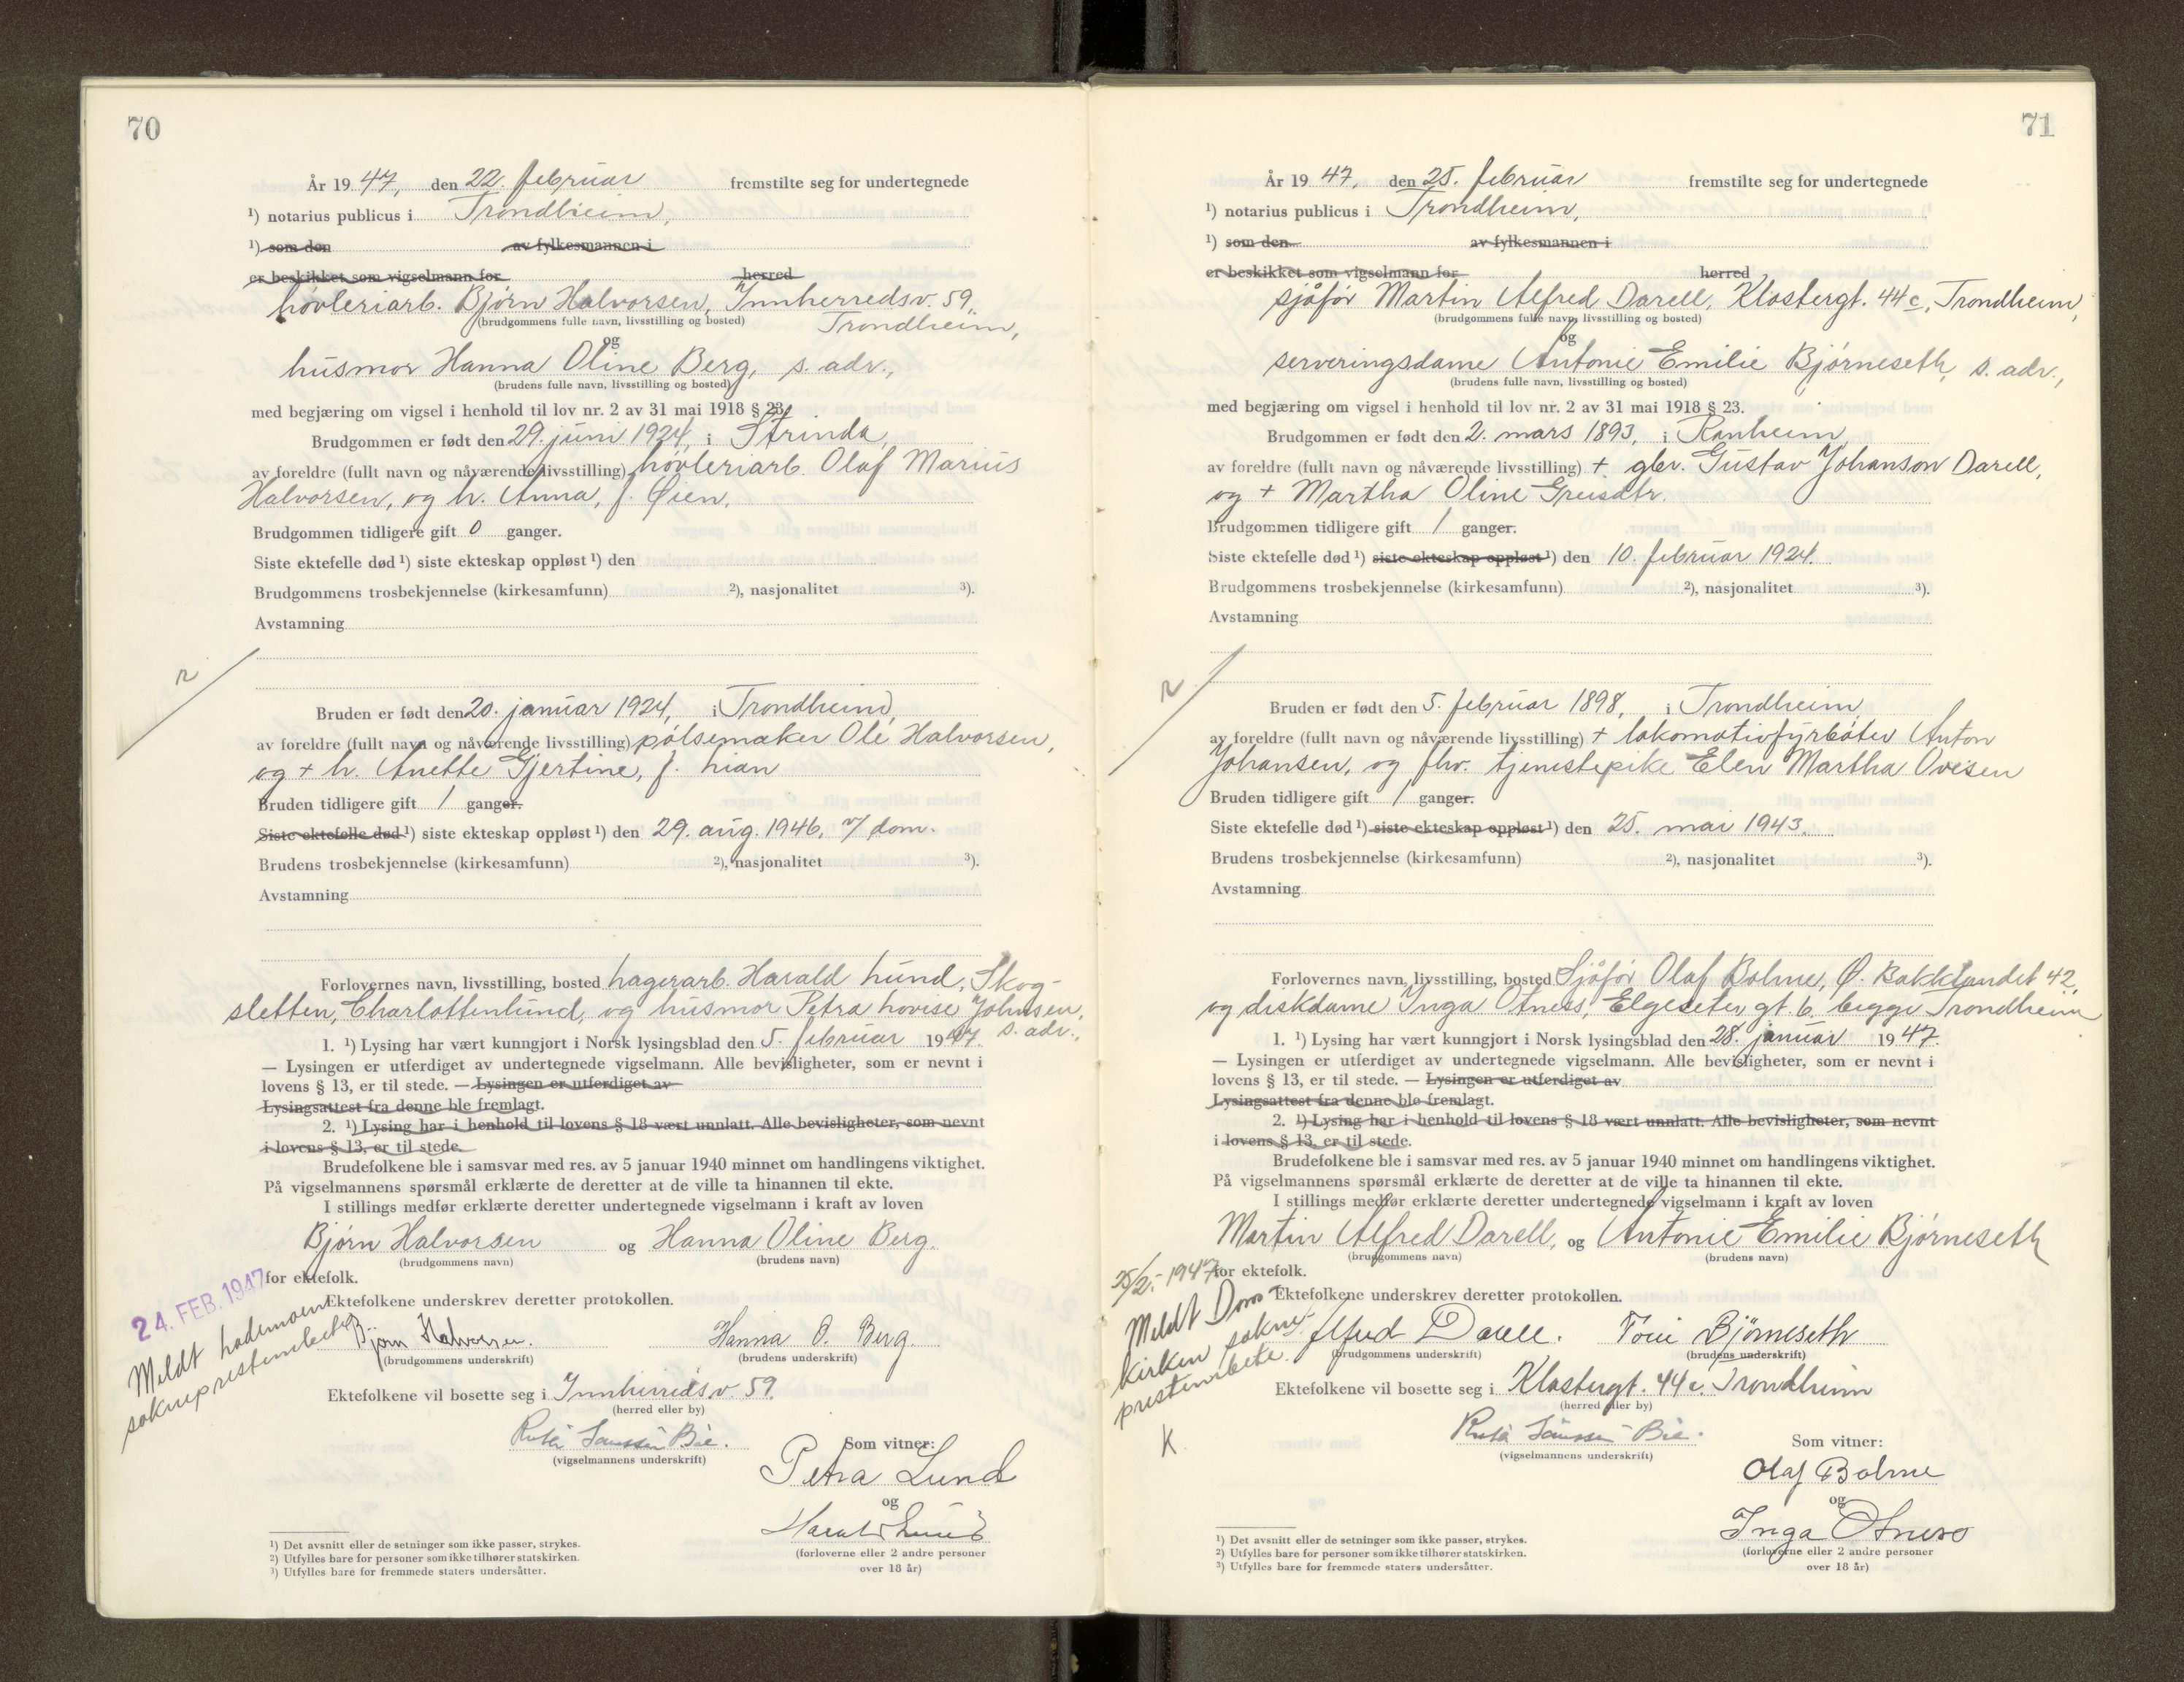 70
År 1947, den 22. februar fremstilte seg for undertegnede
¹) notarius publicus i Trondheim,
¹) som den av fylkesmannen i
er beskikket som vigselmann for herred
høvleriarb. Bjørn Halvorsen, Innherredsv. 59,
(brudgommens fulle navn, livsstilling og bosted) Trondheim,
og
husmor Hanna Oline Berg, s. adr.,
(brudens fulle navn, livsstilling og bosted)
med begjæring om vigsel i henhold til lov nr. 2 av 31 mai 1918 § 23.
Brudgommen er født den 29. juni 1924, i Strinda,
av foreldre (fullt navn og nåværende livsstilling) høvleriarb. Olaf Marius
Halvorsen, og h. Anna, f. Øien.
Brudgommen tidligere gift 0 ganger.
Siste ektefelle død ¹) siste ekteskap oppløst ¹) den
Brudgommens trosbekjennelse (kirkesamfunn) ²), nasjonalitet ³).
Avstamning
Bruden er født den 20. januar 1924, i Trondheim,
av foreldre (fullt navn og nåværende livsstilling) pølsemaker Ole Halvorsen,
og + h. Anette Gjertine, f. Lian
Bruden tidligere gift 1 ganger.
Siste ektefelle død ¹) siste ekteskap oppløst ¹) den 29. aug. 1946, v/ dom.
Brudens trosbekjennelse (kirkesamfunn) ²), nasjonalitet ³).
Avstamning
Forlovernes navn, livsstilling, bosted lagerarb. Harald Lund, Skog-
sletten, Charlottenlund, og husmor Petra Lovise Johnsen,
s. adr.,
1. ¹) Lysing har vært kunngjort i Norsk lysingsblad den 5. februar 1947.
— Lysingen er utferdiget av undertegnede vigselmann. Alle bevisligheter, som er nevnt i
lovens § 13, er til stede. — Lysingen er utferdiget av
Lysingsattest fra denne ble fremlagt.
2. ¹) Lysing har i henhold til lovens § 18 vært unnlatt. Alle bevisligheter, som nevnt
i lovens § 13, er til stede.
Brudefolkene ble i samsvar med res. av 5 januar 1940 minnet om handlingens viktighet.
På vigselmannens spørsmål erklærte de deretter at de ville ta hinannen til ekte.
I stillings medfør erklærte deretter undertegnede vigselmann i kraft av loven
Bjørn Halvorsen og Hanna Oline Berg.
(brudgommens navn) (brudens navn)
for ektefolk.
24. FEB. 1947
Meldt Lademoen
sokneprestembete
Ektefolkene underskrev deretter protokollen.
Bjørn Halvorsen. Hanna O. Berg.
(brudgommens underskrift) (brudens underskrift)
Ektefolkene vil bosette seg i Innherredsv. 59.
(herred eller by)
(vigselmannens underskrift)
Som vitner:
Petra Lund
og
Harald Lund
(forloverne eller 2 andre personer
over 18 år)
¹) Det avsnitt eller de setninger som ikke passer, strykes.
²) Utfylles bare for personer som ikke tilhører statskirken.
³) Utfylles bare for fremmede staters undersåtter.
71
År 1947, den 25. februar fremstilte seg for undertegnede
¹) notarius publicus i Trondheim,
¹) som den av fylkesmannen i
er beskikket som vigselmann for herred
sjåfør Martin Alfred Darell, Klostergt. 44c, Trondheim,
(brudgommens fulle navn, livsstilling og bosted)
og
serveringsdame Antonie Emilie Bjørneseth, s. adr.,
(brudens fulle navn, livsstilling og bosted)
med begjæring om vigsel i henhold til lov nr. 2 av 31 mai 1918 § 23.
Brudgommen er født den 2. mars 1893, i Ranheim
av foreldre (fullt navn og nåværende livsstilling) + gbr. Gustav Johanson Darell,
og + Martha Oline Greisdtr.
Brudgommen tidligere gift 1 ganger.
Siste ektefelle død ¹) siste ekteskap oppløst ¹) den 10. februar 1924.
Brudgommens trosbekjennelse (kirkesamfunn) ²), nasjonalitet ³).
Avstamning
Bruden er født den 5. februar 1898, i Trondheim,
av foreldre (fullt navn og nåværende livsstilling) + lokomotivfyrbøter Anton
Johansen, og fhv. tjenestepike Elen Martha Ovesen
Bruden tidligere gift 1 ganger.
Siste ektefelle død ¹) siste ekteskap oppløst ¹) den 25. mai 1943.
Brudens trosbekjennelse (kirkesamfunn) ²), nasjonalitet ³).
Avstamning
Forlovernes navn, livsstilling, bosted Sjåfør Olaf Bolme, Ø. Bakklandet 42,
og diskdame Inga Otness, Elgeseter gt. 6. begge Trondheim
1. ¹) Lysing har vært kunngjort i Norsk lysingsblad den 28. januar 1947.
— Lysingen er utferdiget av undertegnede vigselmann. Alle bevisligheter, som er nevnt i
lovens § 13, er til stede. — Lysingen er utferdiget av
Lysingsattest fra denne ble fremlagt.
2. ¹) Lysing har i henhold til lovens § 18 vært unnlatt. Alle bevisligheter, som nevnt
i lovens § 13, er til stede.
Brudefolkene ble i samsvar med res. av 5 januar 1940 minnet om handlingens viktighet.
På vigselmannens spørsmål erklærte de deretter at de ville ta hinannen til ekte.
I stillings medfør erklærte deretter undertegnede vigselmann i kraft av loven
Martin Alfred Darell, og Antonie Emilie Bjørneseth
(brudgommens navn) (brudens navn)
for ektefolk.
25/2.-1947
Meldt Dom-
kirken sokne-
prestembete.
K.
Ektefolkene underskrev deretter protokollen.
Alfred Darell. Toni Bjørneseth
(brudgommens underskrift) (brudens underskrift)
Ektefolkene vil bosette seg i Klostergt. 44c. Trondheim
(herred eller by)
(vigselmannens underskrift)
Som vitner:
Olaf Bolme
og
Inga Otness
(forloverne eller 2 andre personer
over 18 år)
¹) Det avsnitt eller de setninger som ikke passer, strykes.
²) Utfylles bare for personer som ikke tilhører statskirken.
³) Utfylles bare for fremmede staters undersåtter.